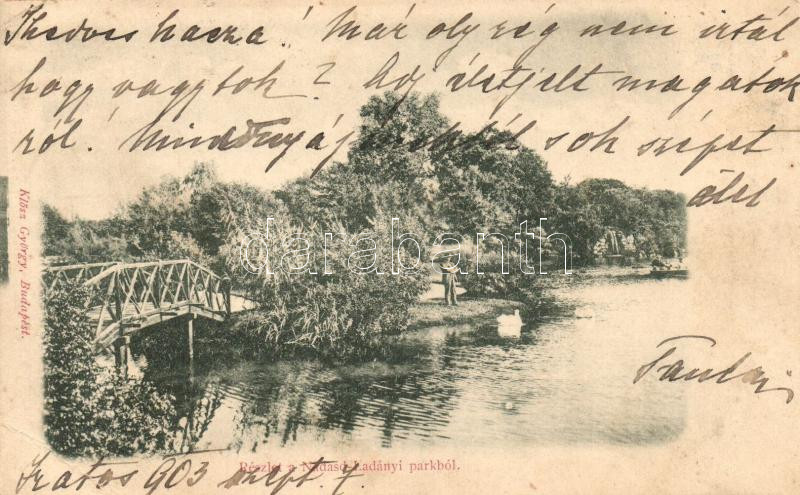 Kedves hasza! Már oly rég nem irtál
hogy vagytok? Adj életjelt magatok
ról! Mindnyájunktól sok szépet
álel
Klösz György, Budapest.
darabanth
Részlet a Nádasd-Ladányi parkból.
903 szept 7.